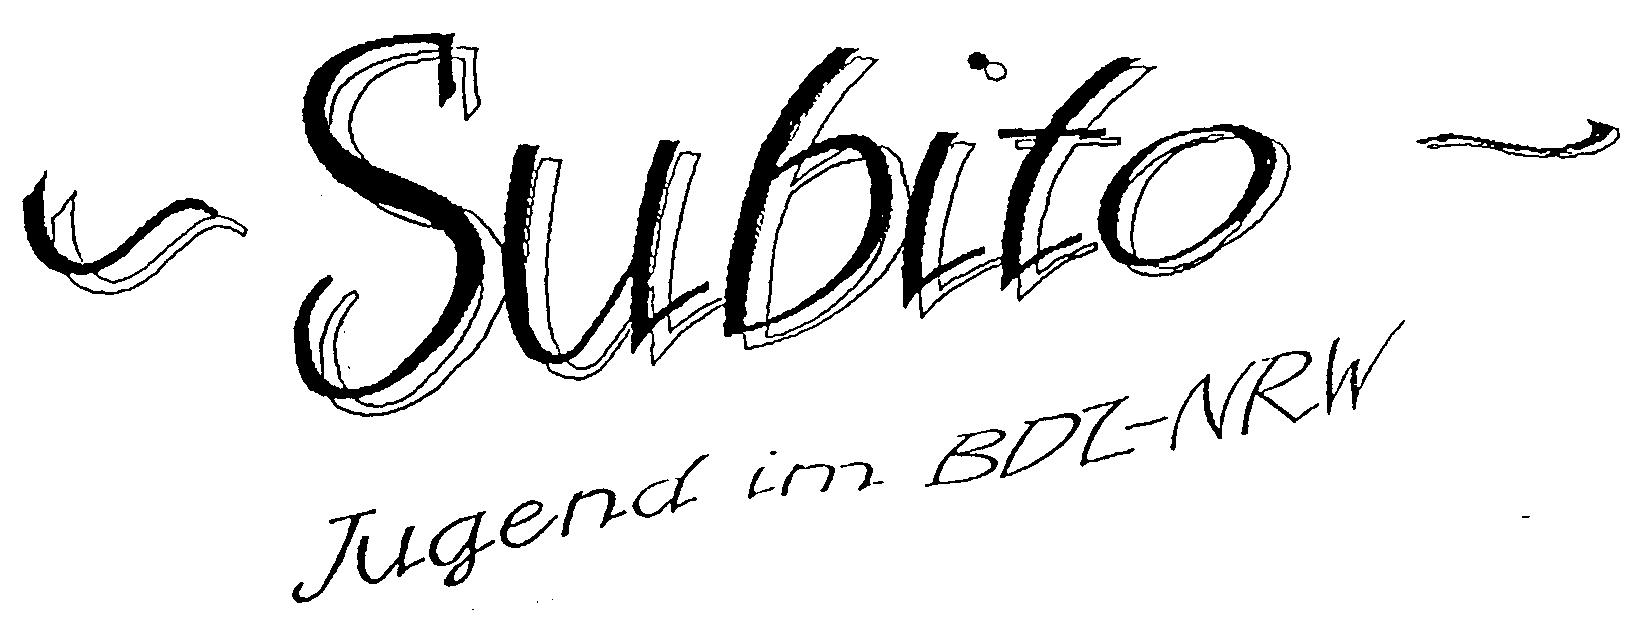 ~ Subito ~
Jugend im BDZ-NRW